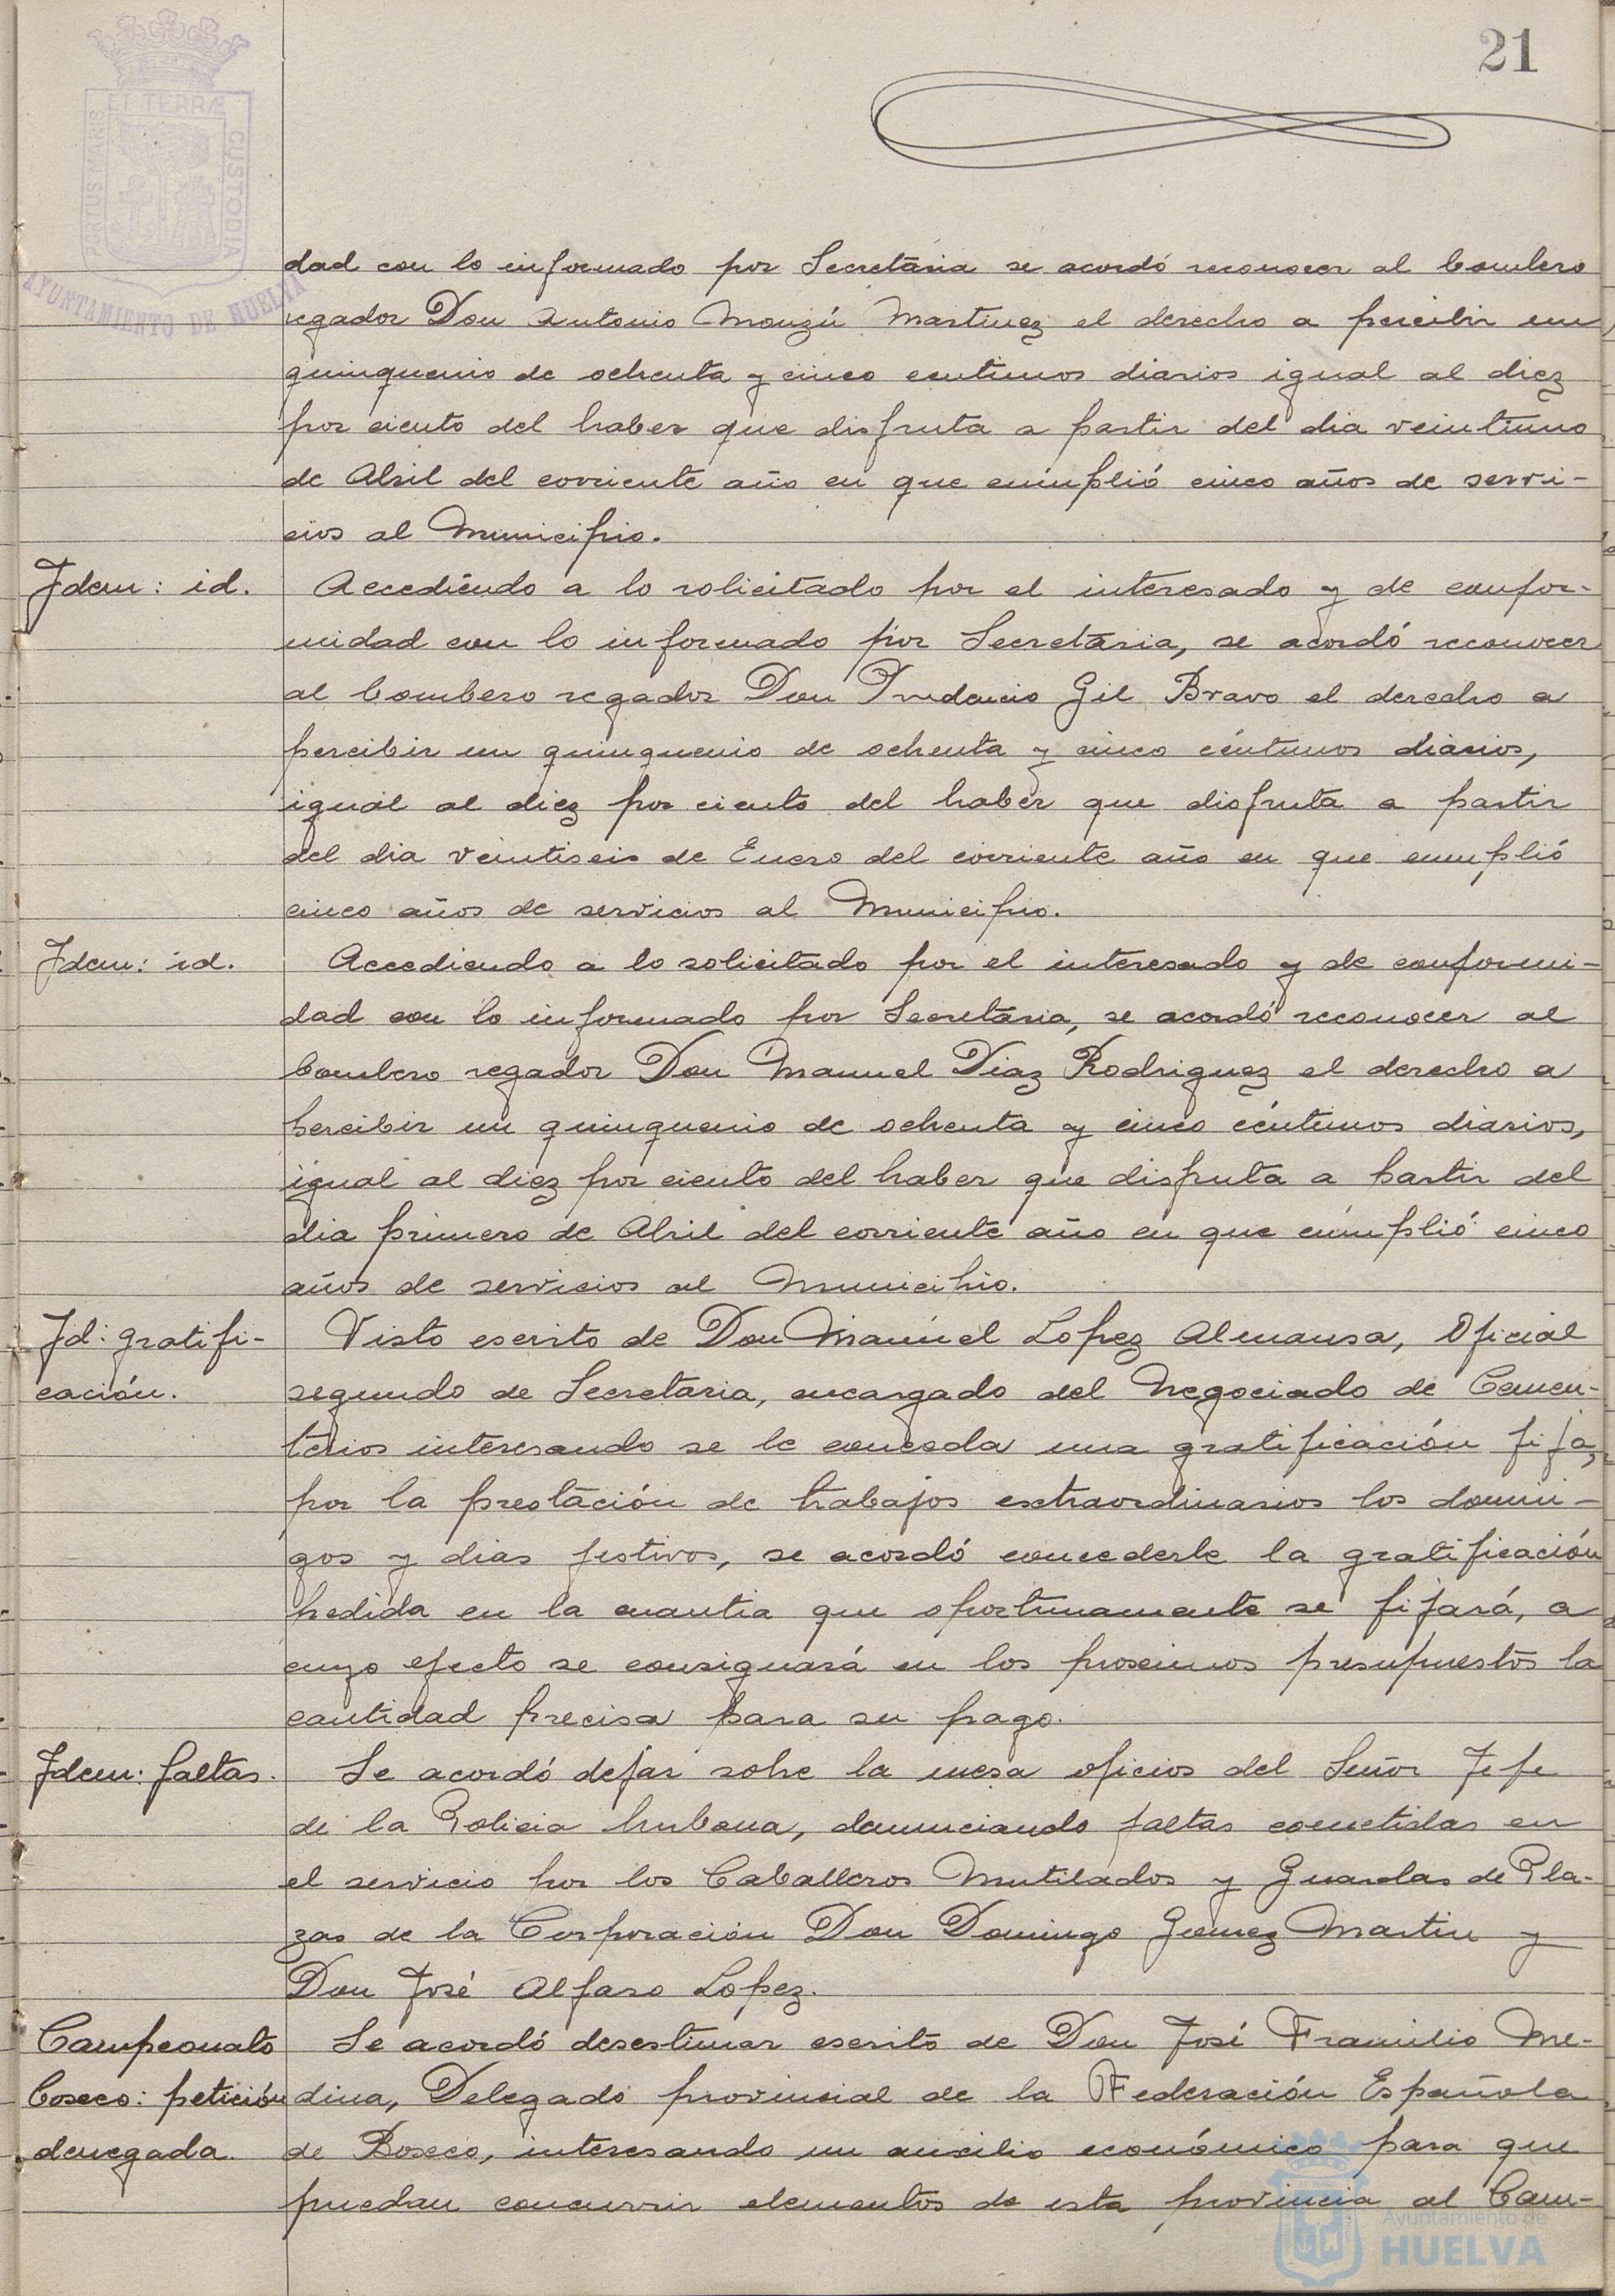 21
PORTUS MARIS ET TERRÆ CUSTODIA
AYUNTAMIENTO DE HUELVA
dad con lo informado por Secretaria se acordó reconocer al bombero
regador Don Antonio Monzú Martinez el derecho a percibir un
quinquenio de ochenta y cinco centimos diarios igual al diez
por ciento del haber que disfruta a partir del dia veintiuno
de Abril del corriente año en que cumplió cinco años de servi-
cios al Municipio.
Idem: id.
Accediendo a lo solicitado por el interesado y de confor-
midad con lo informado por Secretaria, se acordó reconocer
al bombero regador Don Prudencio Gil Bravo el derecho a
percibir un quinquenio de ochenta y cinco céntimos diarios,
igual al diez por ciento del haber que disfruta a partir
del dia veintiseis de Enero del corriente año en que cumplió
cinco años de servicios al Municipio.
Idem: id.
Accediendo a lo solicitado por el interesado y de conformi-
dad con lo informado por Secretaria, se acordó reconocer al
bombero regador Don Manuel Diaz Rodriguez el derecho a
percibir un quinquenio de ochenta y cinco céntimos diarios,
igual al diez por ciento del haber que disfruta a partir del
dia primero de Abril del corriente año en que cumplió cinco
años de servicios al Municipio.
Id: gratifi-
cación.
Visto escrito de Don Manuel Lopez Almansa, Oficial
segundo de Secretaria, encargado del Negociado de Cemen-
terios interesando se le conceda una gratificación fija,
por la prestación de trabajos extraordinarios los domin-
gos y dias festivos, se acordó concederle la gratificación
pedida en la cuantia que oportunamente se fijará, a
cuyo efecto se consignará en los proximos presupuestos la
cantidad precisa para su pago.
Idem: faltas.
Se acordó dejar sobre la mesa oficios del Señor Jefe
de la Policia hurbana, denunciando faltas cometidas en
el servicio por los Caballeros Mutilados y Guardas de Pla-
zas de la Corporación Don Domingo Gomez Martin y
Don José Alfaro Lopez.
Campeonato
boxeo: petición
denegada.
Se acordó desestimar escrito de Don José Framilio Me-
dina, Delegado provincial de la Federación Española
de Boxeo, interesando un auxilio económico para que
puedan concurrir elementos de esta provincia al Cam-
Ayuntamiento de
HUELVA